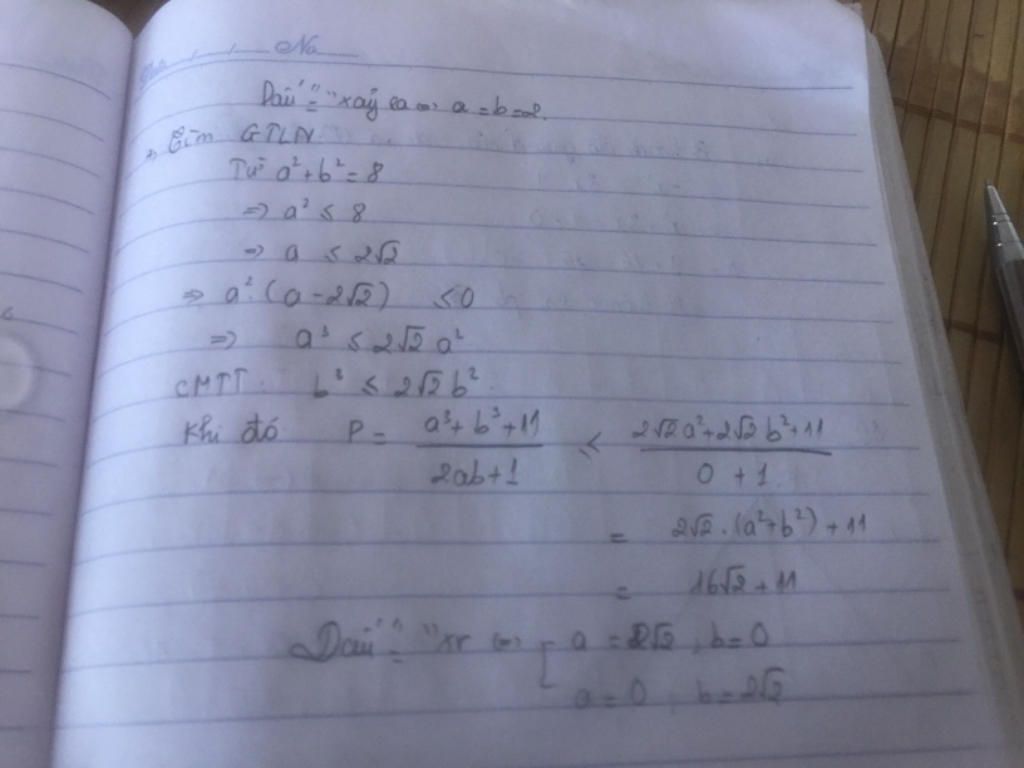 No
Dấu "=" xảy ra <=> a = b = 2.
Tìm GTLN
Từ a² + b² = 8
=> a² ≤ 8
=> a ≤ 2√2
=> a². (a - 2√2) ≤ 0
=> a³ ≤ 2√2 a²
CMTT: b³ ≤ 2√2 b²
Khi đó P = (a³ + b³ + 11)/(2ab + 1) ≤ (2√2a² + 2√2b² + 11)/(0 + 1)
= 2√2 . (a² + b²) + 11
= 16√2 + 11
Dấu "=" xr <=> [ a = 2√2 , b = 0
a = 0 , b = 2√2